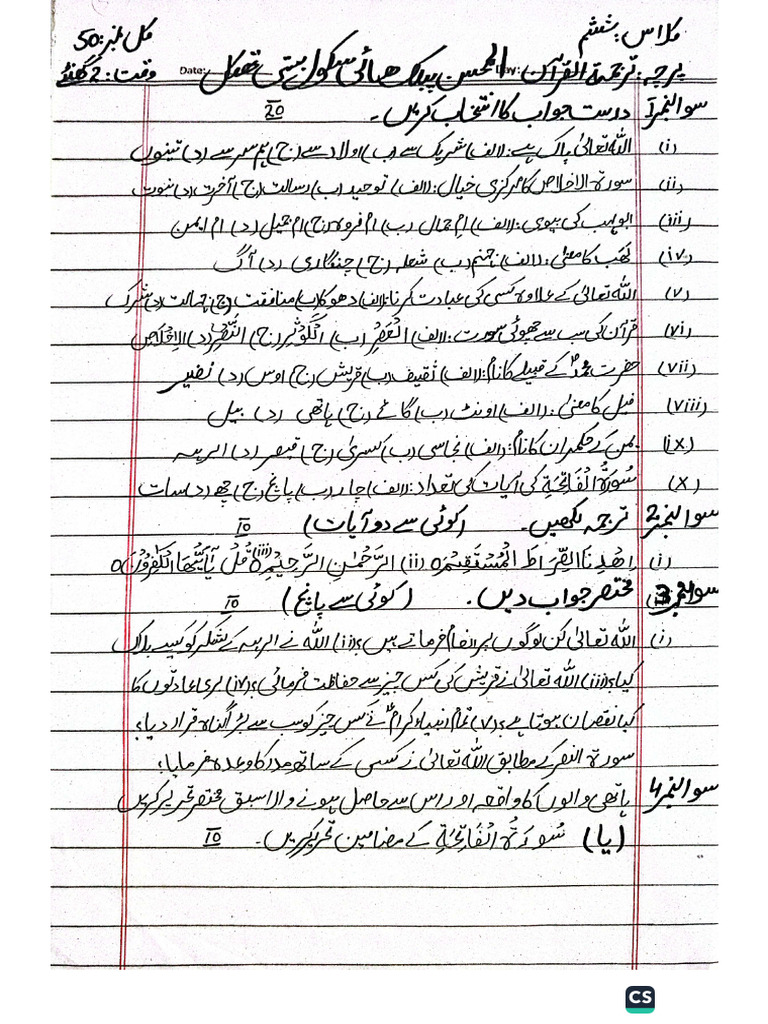 کلاس: ششم کل نمبر: 50
پرچہ: ترجمۃ القرآن الحسن پبلک ھائی سکول بستی تھہکل وقت: 2 گھنٹے
Date:
سوال نمبر 1 درست جواب کا انتخاب کریں۔ 20
(i) اللہ تعالیٰ پاک ہے: (الف) شریک سے (ب) اولاد سے (ج) ہم سر سے (د) تینوں
(ii) سورۃ الاخلاص کا مرکزی خیال: (الف) توحید (ب) رسالت (ج) آخرت (د) نبوت
(iii) ابو لہب کی بیوی: (الف) ام جمال (ب) ام فروہ (ج) ام جمیل (د) ام ایمن
(iv) لَھَب کا معنیٰ: (الف) جہنم (ب) شعلہ (ج) چنگاری (د) آگ
(v) اللہ تعالیٰ کے علاوہ کسی کی عبادت کرنا: (الف) دھوکا (ب) منافقت (ج) جہالت (د) شرک
(vi) قرآن کی سب سے چھوٹی سورت: (الف) الْعَصْرِ (ب) الْکَوْثَر (ج) النَّصْر (د) الْاِخْلَاص
(vii) حضرت محمدؐ کے قبیلے کا نام: (الف) ثقیف (ب) قریش (ج) اوس (د) نضیر
(viii) فیل کا معنیٰ: (الف) اونٹ (ب) گائے (ج) ہاتھی (د) بیل
(ix) یمن کے حکمران کا نام: (الف) نجاسی (ب) کسریٰ (ج) قیصر (د) ابرہہ
(x) سُوْرَۃُ الْفَاتِحَۃِ کی آیات کی تعداد: (الف) چار (ب) پانچ (ج) چھ (د) سات
سوال نمبر 2 ترجمہ لکھیں۔ (کوئی سے دو آیات) 10
(i) اِھْدِنَا الصِّرَاطَ الْمُسْتَقِیْمَ ہ (ii) الرَّحْمٰنِ الرَّحِیْمِ ہ (iii) قُلْ یٰٓاَیُّھَا الْکٰفِرُوْنَ ہ
سوال نمبر 3 مختصر جواب دیں۔ (کوئی سے پانچ) 10
(i) اللہ تعالیٰ کن لوگوں پر انعام فرماتے ہیں؟ (ii) اللہ نے ابرہہ کے لشکر کو کیسے ہلاک
کیا؟ (iii) اللہ تعالیٰ نے قریش کی کس چیز سے حفاظت فرمائی؟ (iv) بری عادتوں کا
کیا نقصان ہوتا ہے؟ (v) تمام انبیاء کرامؑ نے کس چیز کو سب سے بڑا گناہ قرار دیا؟
سورۃ النصر کے مطابق اللہ تعالیٰ نے کسی کے ساتھ مدد کا وعدہ فرمایا؟
سوال نمبر 4 ہاتھی والوں کا واقعہ اور اس سے حاصل ہونے والا سبق مختصر تحریر کریں
(یا) سُوْرَۃُ الْفَاتِحَۃِ کے مضامین تحریر کریں۔ 10
CS